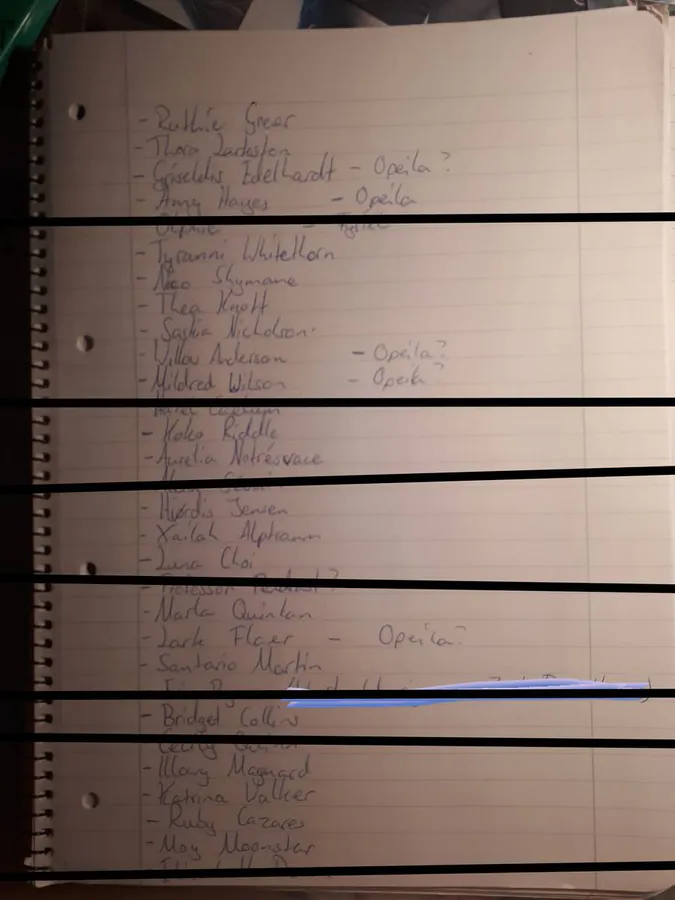 - Ruthie Greer
- Thora
- Griseldis Edelhardt - Opeila?
- Amy Hayes - Opeila
- Tyranni Whitethorn
- Nao Shymane
- Thea Knott
- Saskia Nicholson
- Willow Anderson - Opeila?
- Mildred Wilson - Opeila?
- Koko Riddle
- Aurelia Notresvace
- Hjördis Jensen
- Xailah
- Luna Choi
- Professor
- Marla Quinlan
- Lark Flaer - Opeila?
- Santario Martin
- Bridget Collins
- Illary Maguard
- Katrina Valker
- Ruby Cazares
- May Moonstar